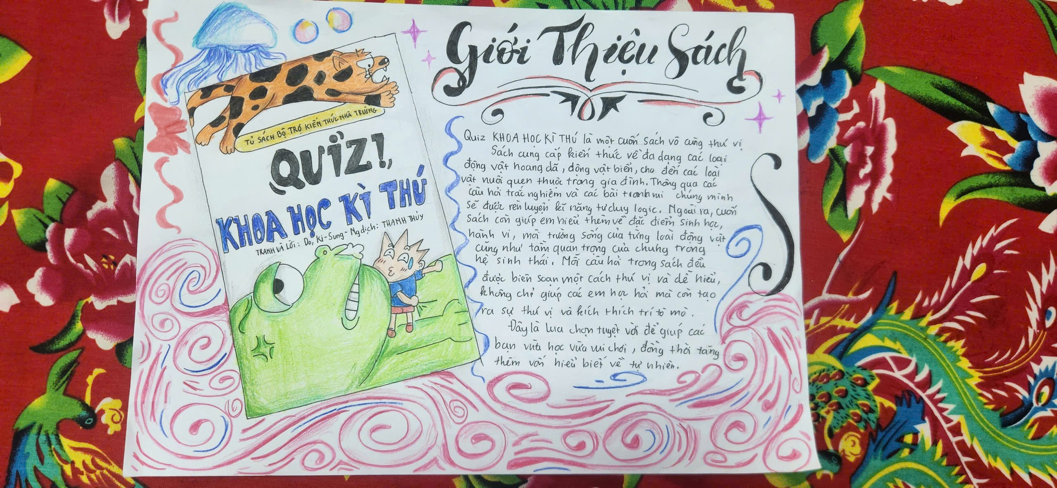 TỦ SÁCH BỔ TRỢ KIẾN THỨC NHÀ TRƯỜNG
QUIZ!,
KHOA HỌC KÌ THÚ
TRANH VÀ LỜI: Do, Ki-Sung - Ng dịch: THANH THÚY
Giới Thiệu Sách
Quiz KHOA HỌC KÌ THÚ là một cuốn sách vô cùng thú vị
Sách cung cấp kiến thức về đa dạng các loại
động vật hoang dã, động vật biển, cho đến các loại
vật nuôi quen thuộc trong gia đình. Thông qua các
câu hỏi trắc nghiệm và các bài tranh chúng mình
sẽ được rèn luyện kĩ năng tư duy logic. Ngoài ra, cuốn
sách còn giúp em hiểu thêm về đặc điểm sinh học,
hành vi, môi trường sống của từng loại động vật
cũng như tầm quan trọng của chúng trong
hệ sinh thái. Mỗi câu hỏi trong sách đều
được biên soạn một cách thú vị và dễ hiểu,
không chỉ giúp các em học hỏi mà còn tạo
ra sự thú vị và kích thích trí tò mò.
Đây là lựa chọn tuyệt vời để giúp các
bạn vừa học vừa vui chơi, đồng thời tăng
thêm vốn hiểu biết về tự nhiên.